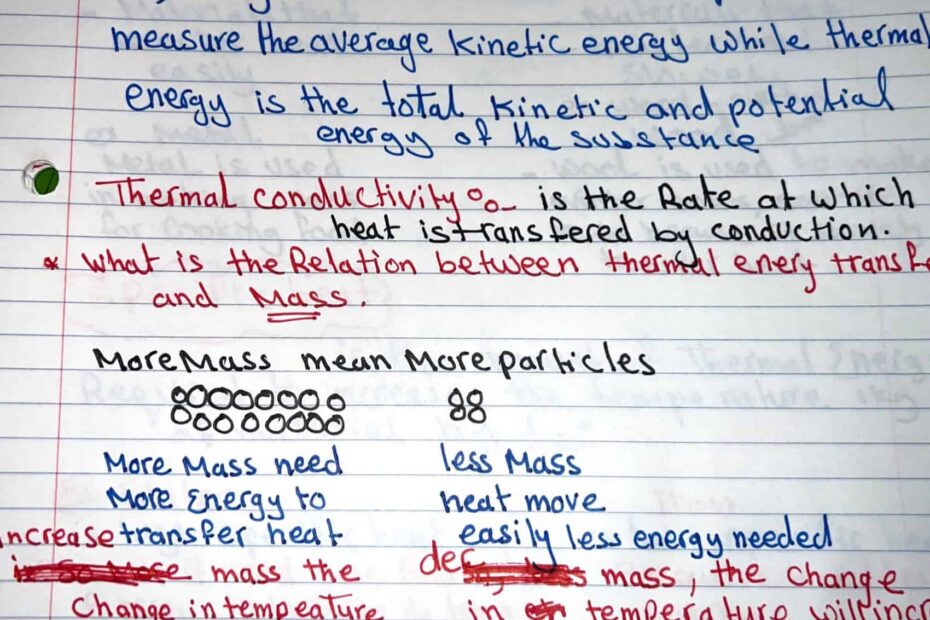 measure the average kinetic energy while thermal
energy is the total kinetic and potential
energy of the substance
Thermal conductivity :- is the Rate at which
heat is transfered by conduction.
* what is the Relation between thermal enery transfe
and Mass.
More Mass mean More particles
More Mass need less Mass
More Energy to heat move
increase transfer heat easily less energy needed
mass the dec mass, the change
change in tempeature in temperature will incr